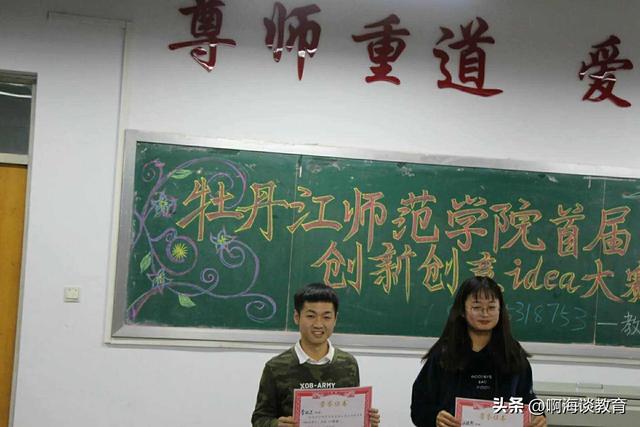 尊师重道 爱
牡丹江师范学院首届
创新创意idea大赛
318753
XOB-ARMY
荣誉证书
荣誉证书
头条 @啊海谈教育